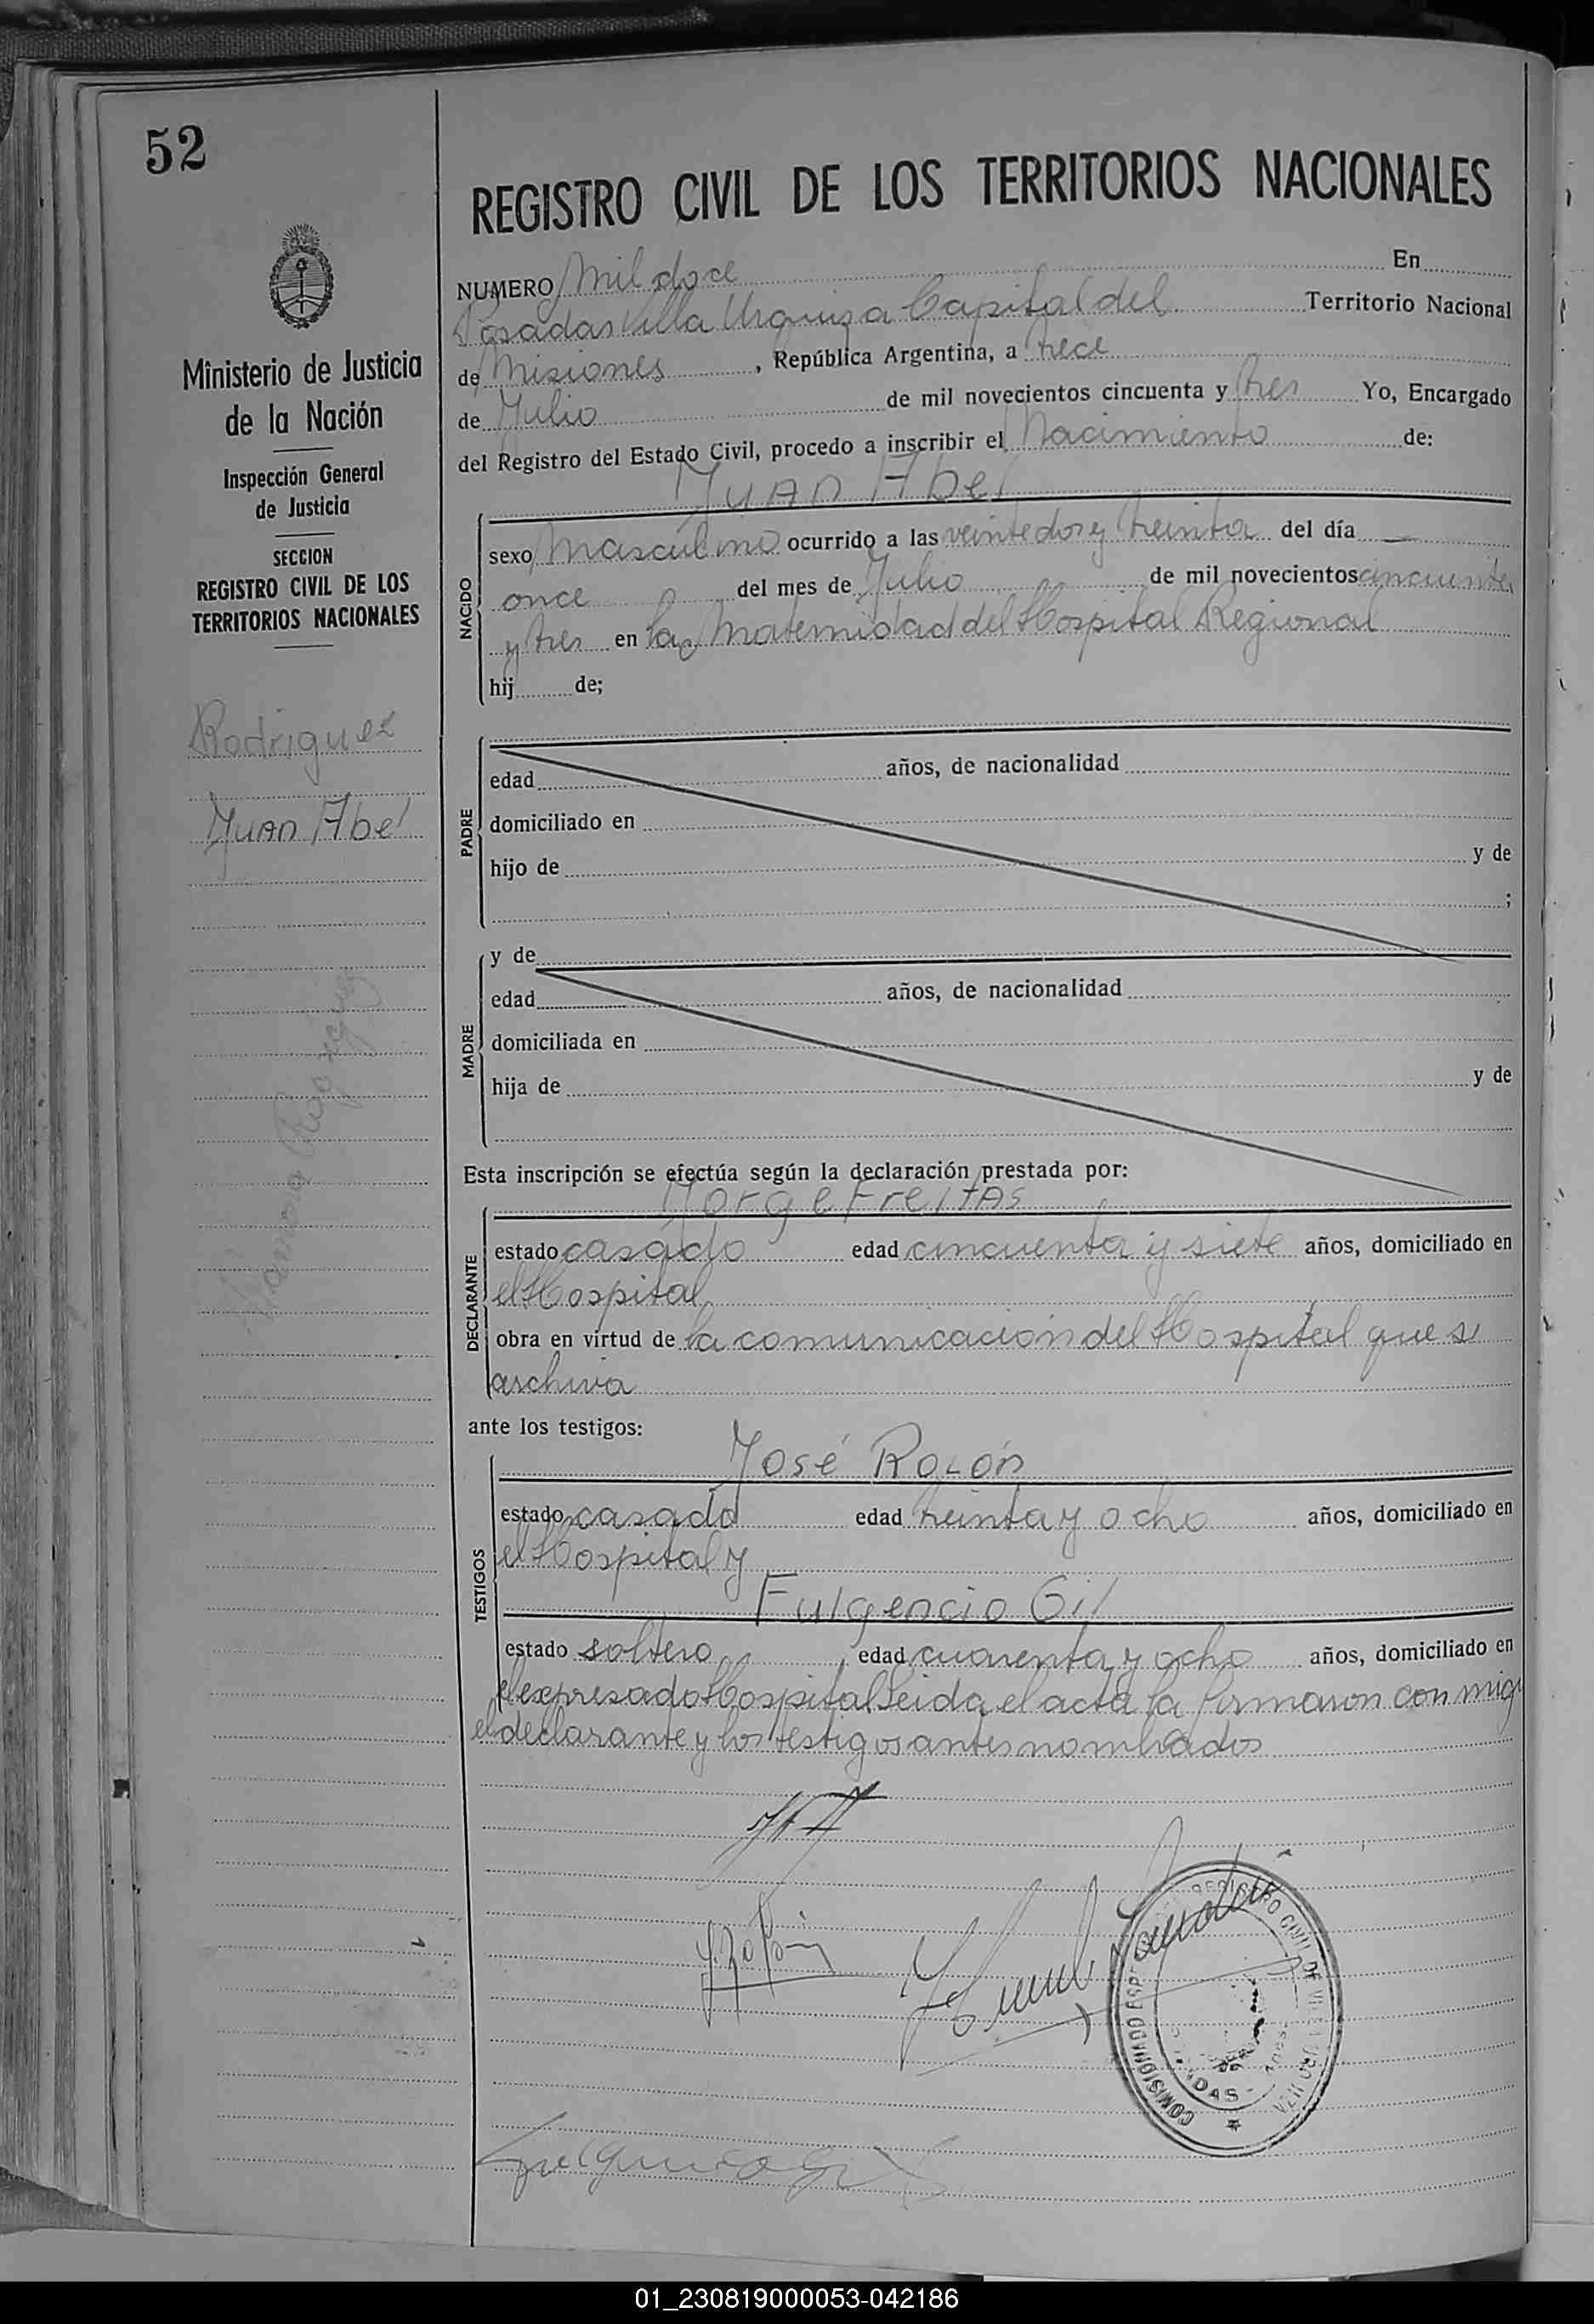 52
REGISTRO CIVIL DE LOS TERRITORIOS NACIONALES
Ministerio de Justicia
de la Nación
Inspección General
de Justicia
SECCION
REGISTRO CIVIL DE LOS
TERRITORIOS NACIONALES
Rodriguez
Juan Abel
NUMERO Mil doce En
Posadas Villa Urquiza Capital del Territorio Nacional
de Misiones, República Argentina, a trece
de Julio de mil novecientos cincuenta y tres Yo, Encargado
del Registro del Estado Civil, procedo a inscribir el Nacimiento de:
Juan Abel
NACIDO
sexo Masculino ocurrido a las veintedos y treinta del día
once del mes de Julio de mil novecientos cincuenta
y tres en la Maternidad del Hospital Regional
hij de;
PADRE
edad años, de nacionalidad
domiciliado en
hijo de y de
;
MADRE
y de
edad años, de nacionalidad
domiciliada en
hija de y de
Esta inscripción se efectúa según la declaración prestada por:
Jorge Freitas
DECLARANTE
estado casado edad cincuenta y siete años, domiciliado en
el Hospital
obra en virtud de la comunicación del Hospital que se
archiva
ante los testigos:
José Rolón
TESTIGOS
estado casado edad treinta y ocho años, domiciliado en
el Hospital y
Fulgencio Gil
estado soltero edad cuarenta y ocho años, domiciliado en
el expresado Hospital Leida el acta la firmaron conmigo
el declarante y los testigos antes nombrados
REGISTRO CIVIL DE VILLA URQUIZA
COMISIONADO
Fulgencio Gil
01_230819000053-042186